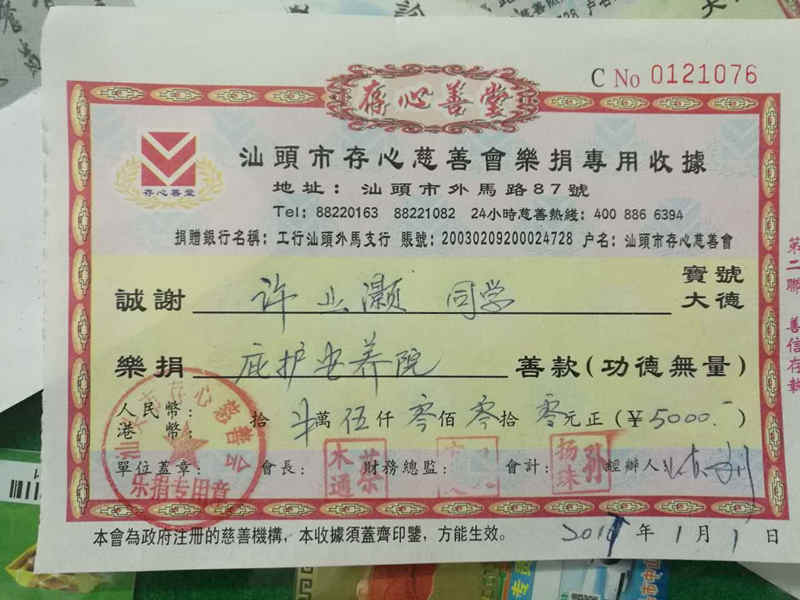 C No 0121076
存心善堂
存心善堂
汕頭市存心慈善會樂捐專用收據
地址：汕頭市外馬路87號
Tel：88220163 88221082 24小時慈善熱綫：400 886 6394
捐贈銀行名稱：工行汕頭外馬支行 賬號：20030209200024728 户名：汕頭市存心慈善會
誠謝 许业灏 同学 寶號 大德
樂捐 庇护安养院 善款(功德無量)
人民幣：
港幣： 拾 萬 伍仟 零佰 零拾 零元正(￥5000.-)
單位蓋章： 會長： 財務總監： 會計： 經辦人
乐捐专用章
木通
扬珠 孙
本會為政府注册的慈善機構，本收據須蓋齊印鑒，方能生效。
年 1月1日
第二聯 善信存執